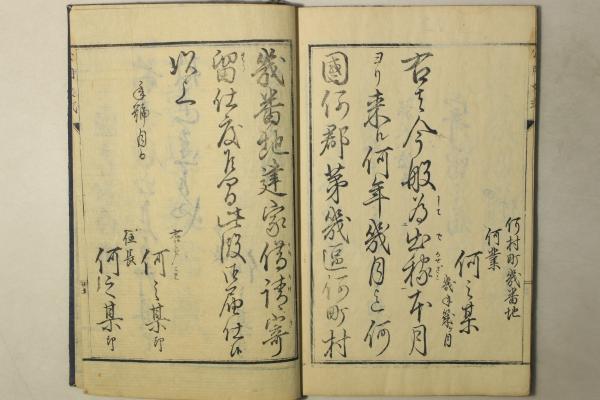 何村町幾番地
何業
何之某
幾年幾月
右者今般為出稼本月
ヨリ来ル何年幾月迄何
國何郡第幾區何町村
幾番地建家借請寄
留仕度候間此段御届仕候
以上
年號月日
右
何之某 印
伍長
何之某 印